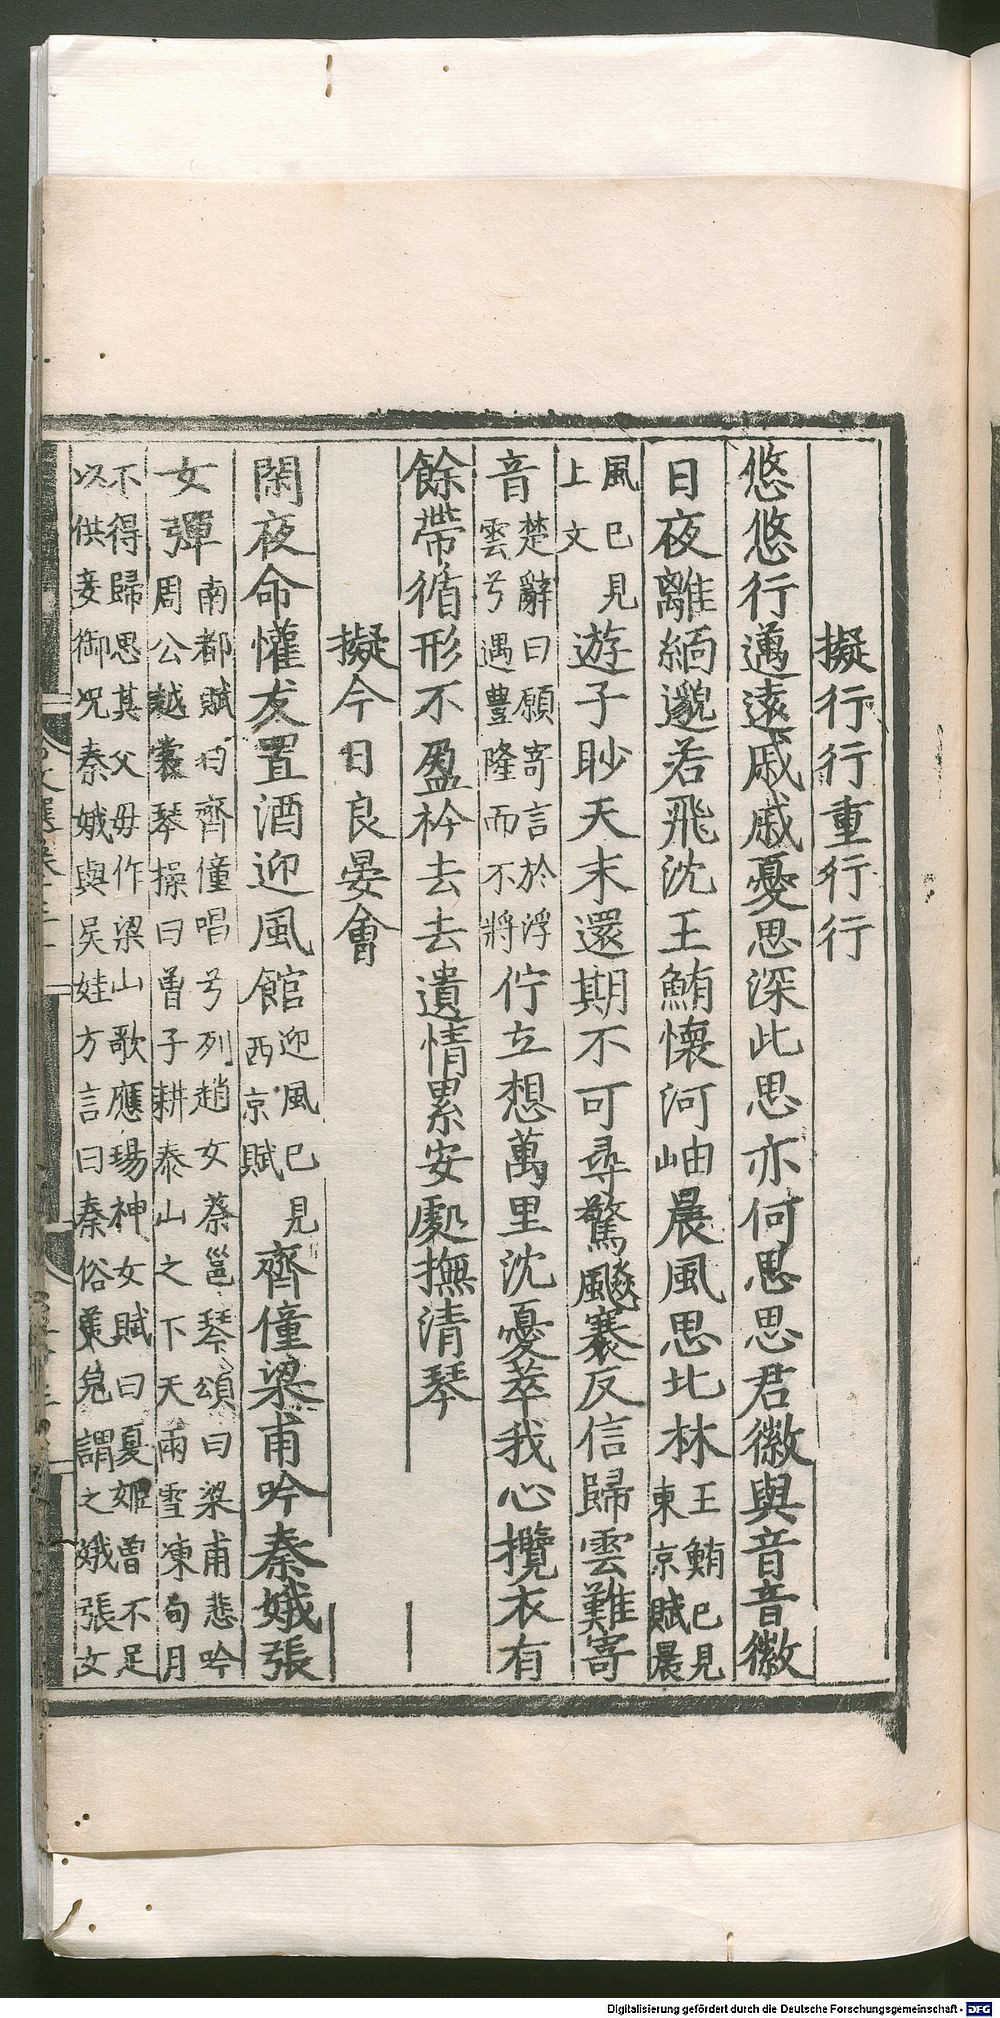 擬行行重行行
悠悠行邁遠戚戚憂思深此思亦何思思君徽與音音徽
日夜離緬邈若飛沈王鮪懷河岫晨風思北林王鮪已見東京賦晨
風已見上文遊子眇天末還期不可尋驚飈褰反信歸雲難寄
音楚辭曰願寄言於浮雲兮遇豐隆而不將佇立想萬里沈憂萃我心攬衣有
餘帶循形不盈衿去去遺情累安處撫清琴
擬今日良宴會
閑夜命懽友置酒迎風館迎風已見西京賦齊僮梁甫吟秦娥張
女彈南都賦曰齊僮唱兮列趙女蔡邕琴頌曰梁甫悲吟周公越裳琴操曰曾子耕泰山之下天雨雪凍旬月
不得歸思其父母作梁山歌應瑒神女賦曰夏姬曾不足以供妾御況秦娥與吳娃方言曰秦俗美皃謂之娥張女
Digitalisierung gefördert durch die Deutsche Forschungsgemeinschaft - DFG